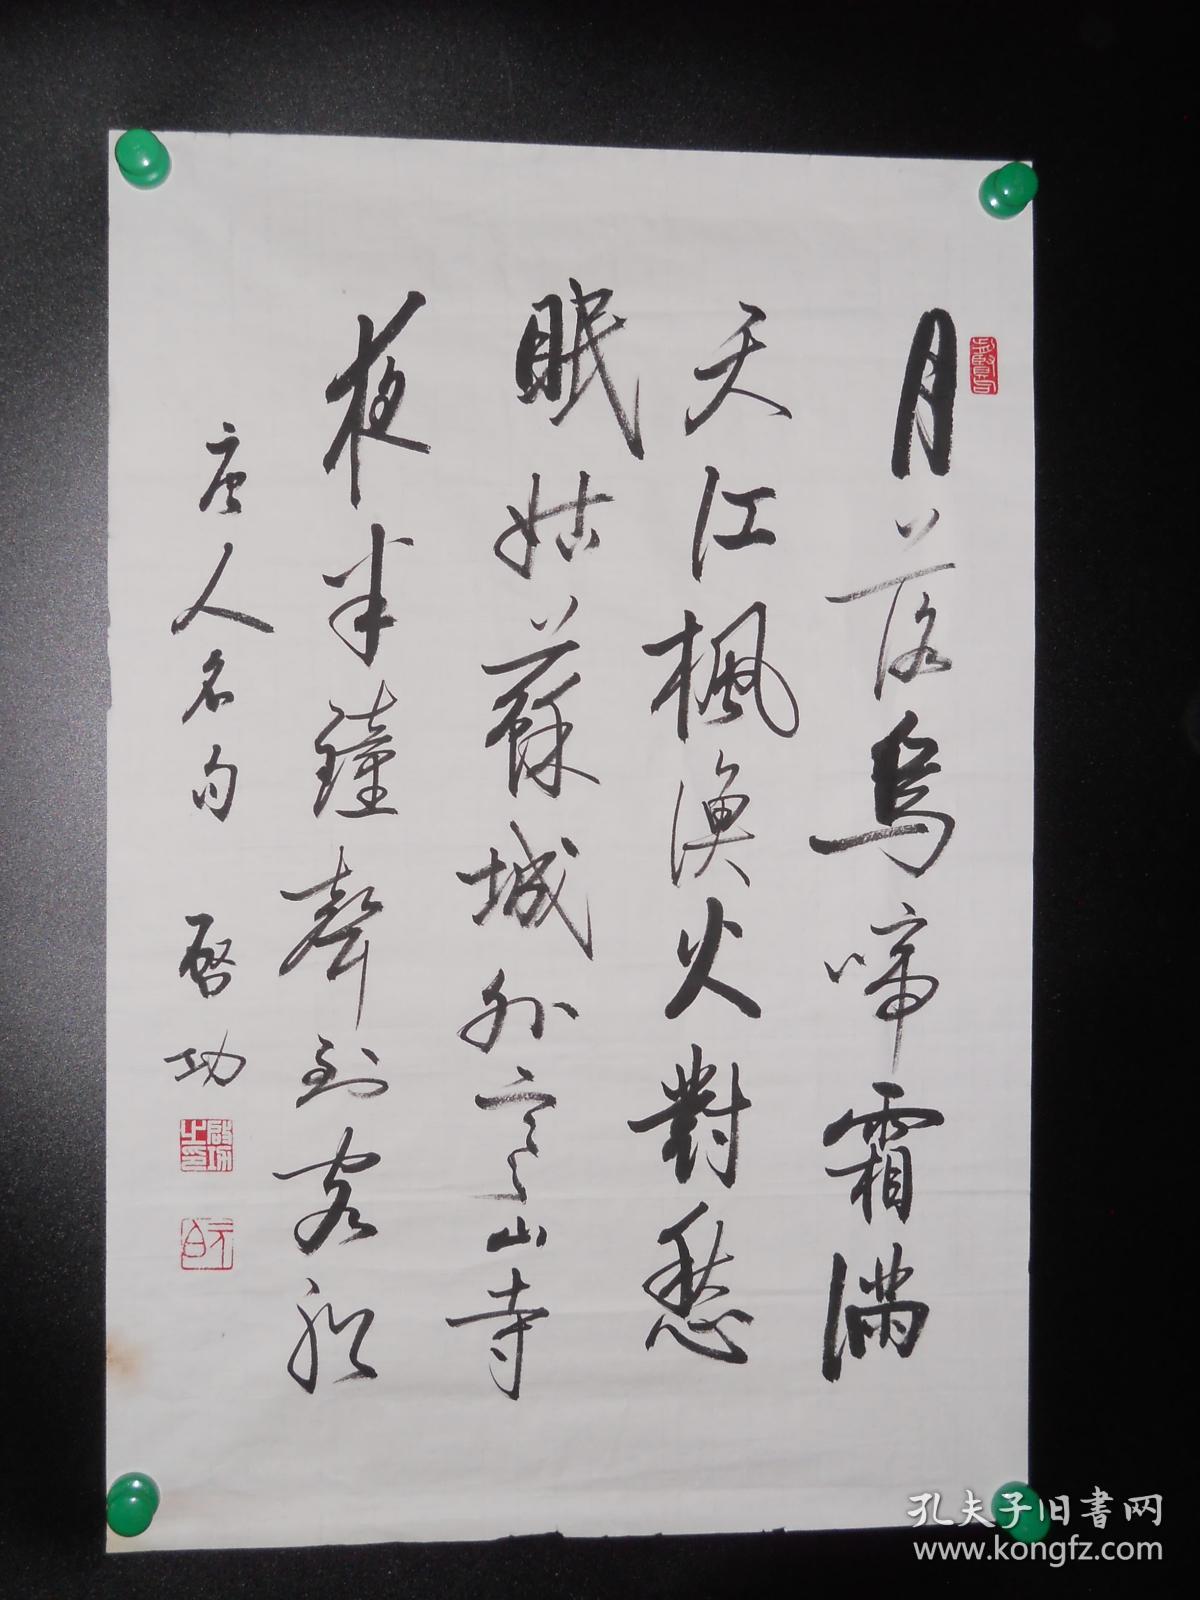 月落烏啼霜滿
天江楓漁火對愁
眠姑蘇城外寒山寺
夜半鐘聲到客船
唐人名句 啓功
啟功之印
元白
孔夫子旧書网
www.kongfz.com